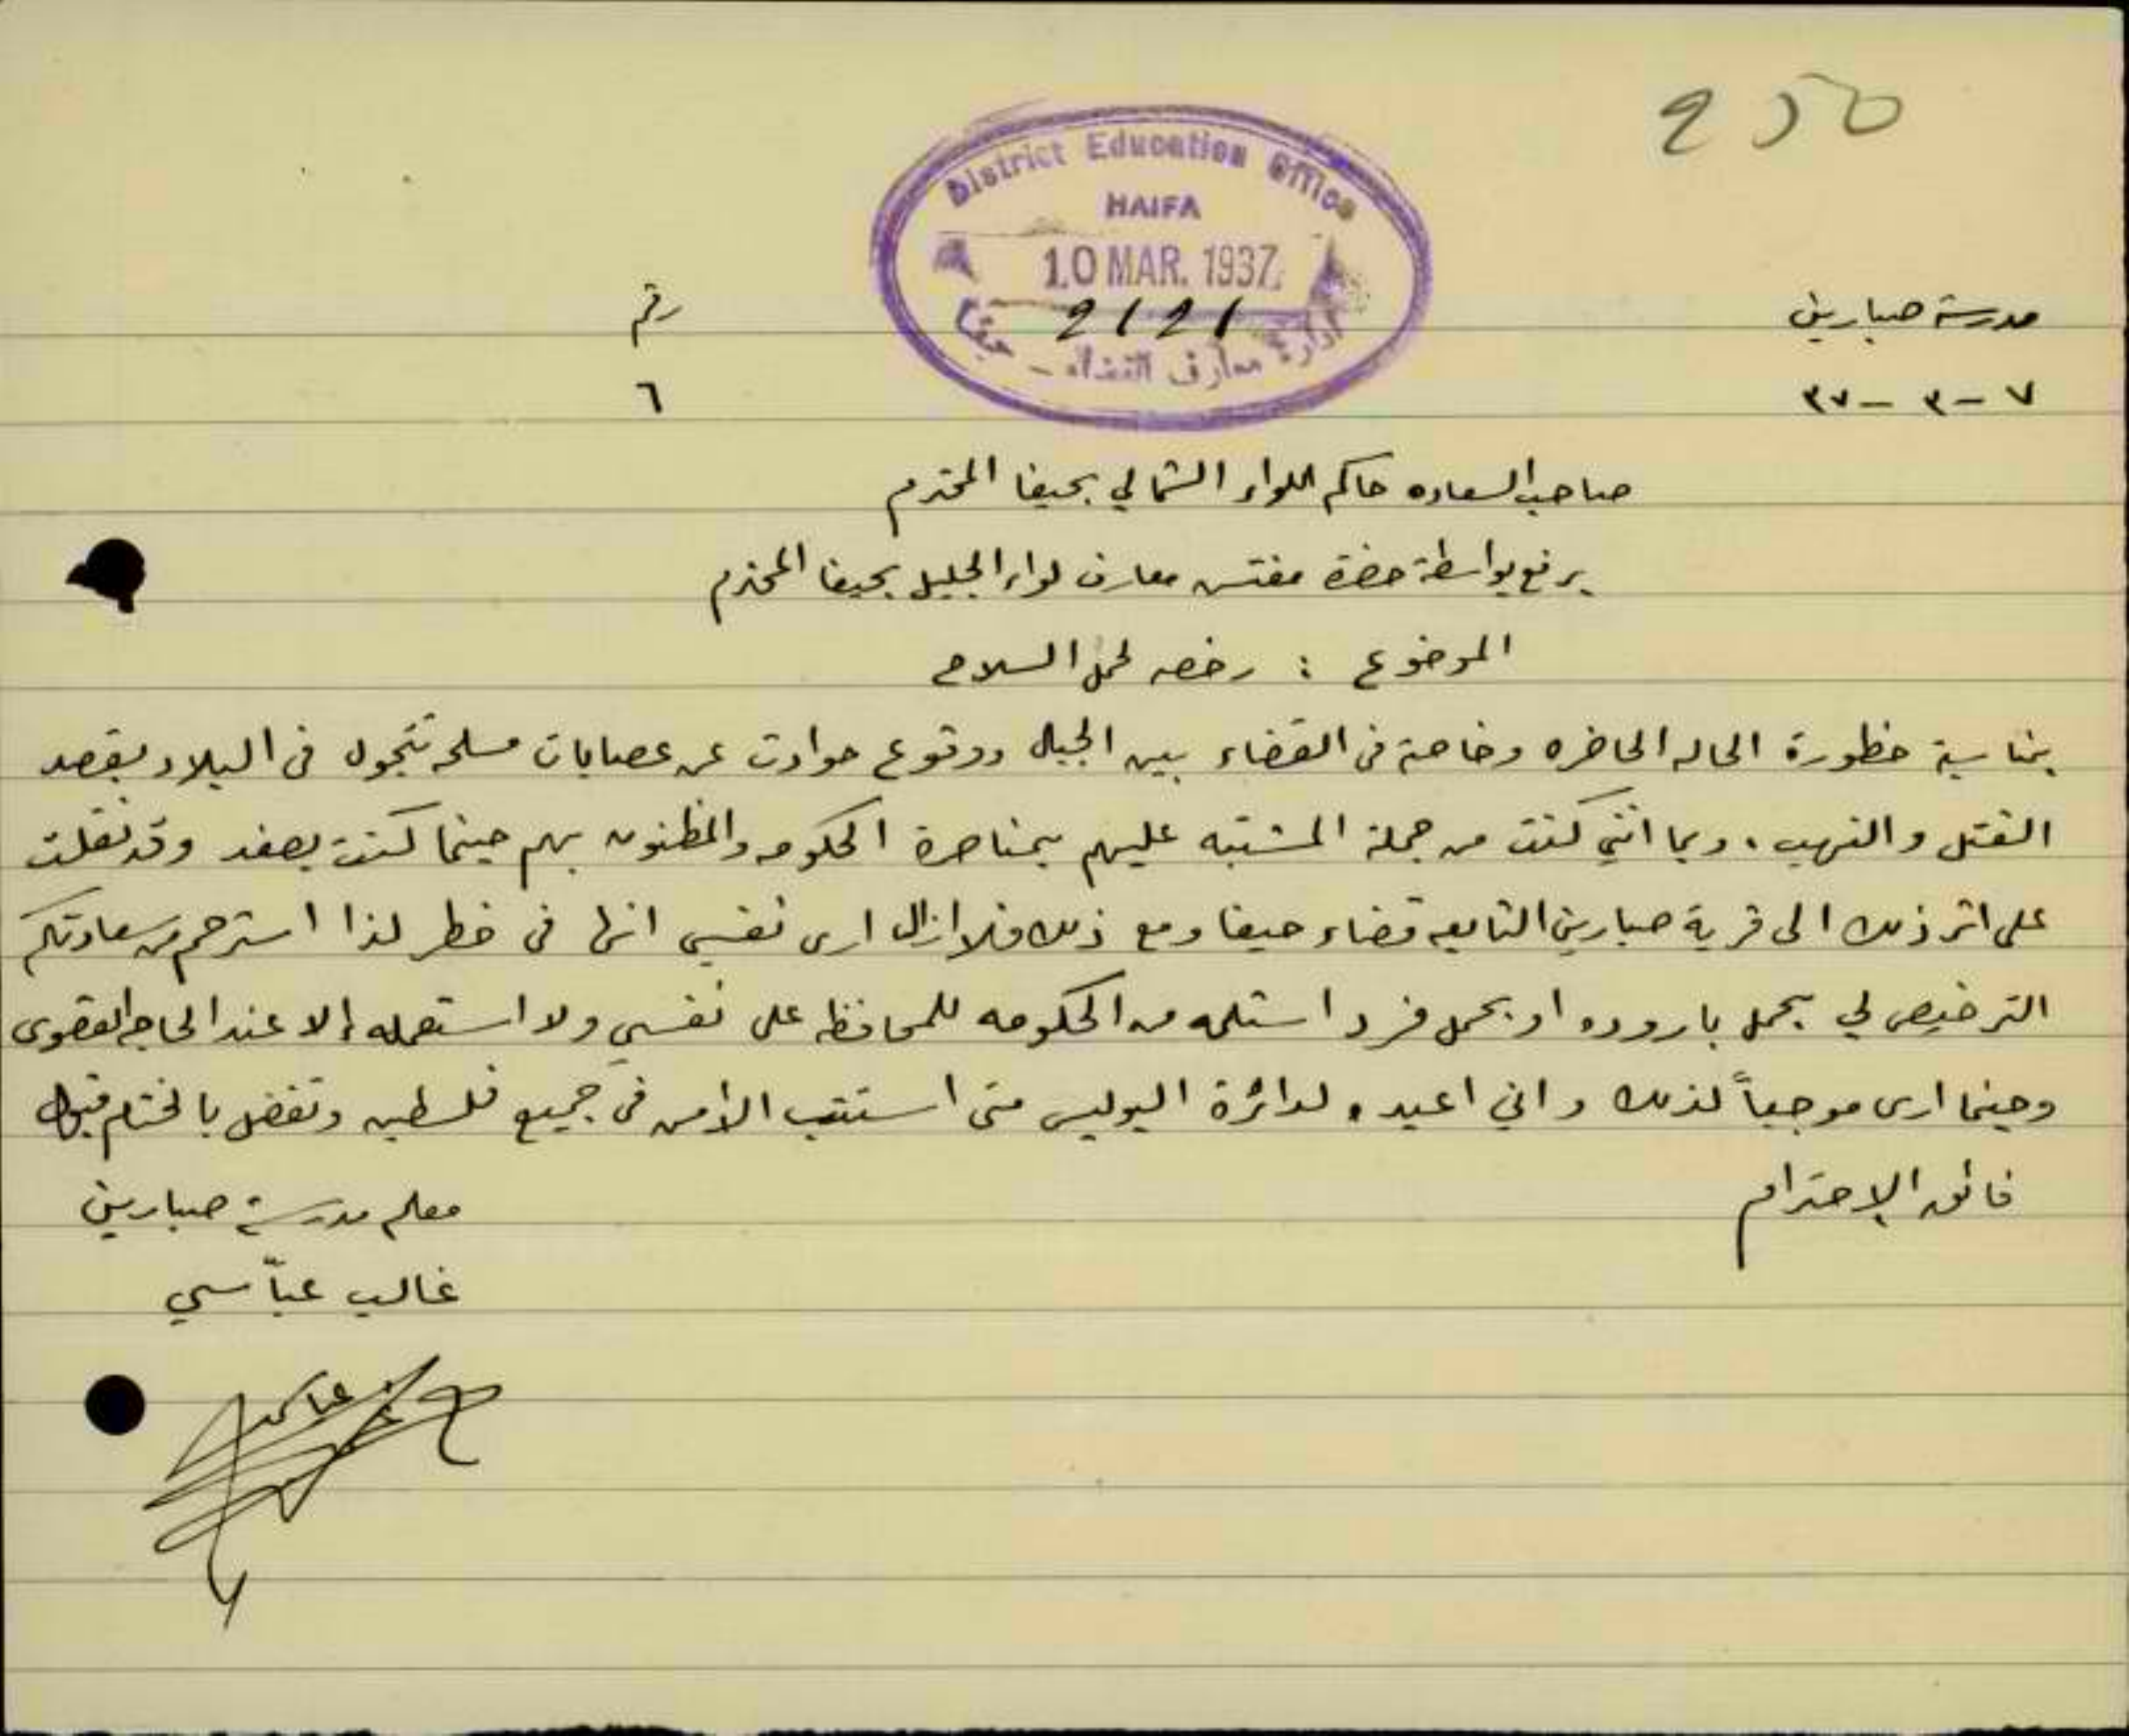 250
District Education Office
HAIFA
10 MAR. 1937
2121
ادارة معارف القضاء - حيفا
مدرسة صبارين
رقم
٧ - ٣ - ٣٧
٦
صاحب السعاده حاكم اللواء الشمالي بحيفا المحترم
يرفع بواسطة حضرة مفتش معارف لواء الجليل بحيفا المحترم
الموضوع : رخصه لحمل السلاح
بمناسبة خطورة الحاله الحاضره وخاصة في القضاء بين الجبال ووقوع حوادث عن عصابات مسلحه تتجول في البلاد بقصد
القتل والنهب. وبما انني كنت من جملة المشتبه عليهم بمناصرة الحكومه والمظنون بهم حينما كنت بصفد وقد نقلت
على اثر ذلك الى قرية صبارين التابعه قضاء حيفا ومع ذلك فلا ازال ارى نفسي انها في خطر لذا استرحم من سعادتكم
الترخيص لي بحمل باروده او بحمل فرد استلمه من الحكومه للمحافظه على نفسي ولا استعمله إلا عند الحاجه القصوى
وحينما ارى موجباً لذلك واني اعيده لدائرة البوليس متى استتب الأمن في جميع فلسطين وتفضل بالختام قبول
فائق الإحترام
معلم مدرسة صبارين
غالب عبّاسي